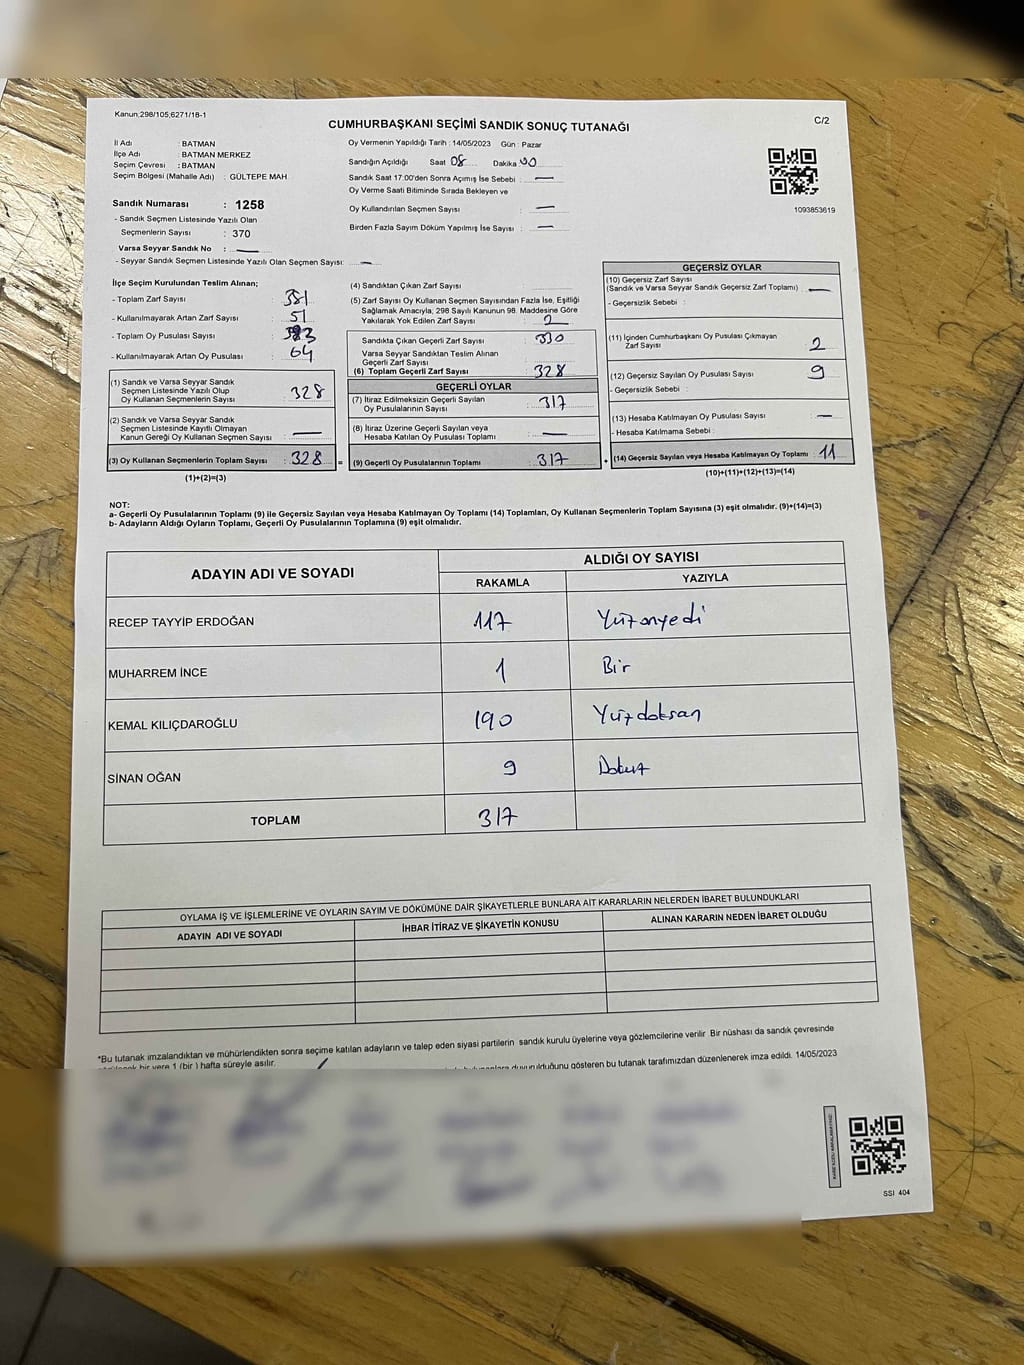 Kanun;298/105;6271/18-1
CUMHURBAŞKANI SEÇİMİ SANDIK SONUÇ TUTANAĞI
C/2
İl Adı : BATMAN
İlçe Adı : BATMAN MERKEZ
Seçim Çevresi : BATMAN
Seçim Bölgesi (Mahalle Adı) : GÜLTEPE MAH
Sandık Numarası : 1258
- Sandık Seçmen Listesinde Yazılı Olan
Seçmenlerin Sayısı : 370
Varsa Seyyar Sandık No : —
- Seyyar Sandık Seçmen Listesinde Yazılı Olan Seçmen Sayısı: —
Oy Vermenin Yapıldığı Tarih : 14/05/2023 Gün : Pazar
Sandığın Açıldığı Saat 08 Dakika 00
Sandık Saat 17:00'den Sonra Açımış İse Sebebi : —
Oy Verme Saati Bitiminde Sırada Bekleyen ve
Oy Kullandırılan Seçmen Sayısı : —
Birden Fazla Sayım Döküm Yapılmış İse Sayısı : —
1093853619
İlçe Seçim Kurulundan Teslim Alınan;
- Toplam Zarf Sayısı : 381
- Kullanılmayarak Artan Zarf Sayısı : 51
- Toplam Oy Pusulası Sayısı :
- Kullanılmayarak Artan Oy Pusulası : 64
(1) Sandık ve Varsa Seyyar Sandık
Seçmen Listesinde Yazılı Olup
Oy Kullanan Seçmenlerin Sayısı : 328
(2) Sandık ve Varsa Seyyar Sandık
Seçmen Listesinde Kayıtlı Olmayan
Kanun Gereği Oy Kullanan Seçmen Sayısı : —
(3) Oy Kullanan Seçmenlerin Toplam Sayısı : 328
(1)+(2)=(3)
(4) Sandıktan Çıkan Zarf Sayısı :
(5) Zarf Sayısı Oy Kullanan Seçmen Sayısından Fazla İse, Eşitliği
Sağlamak Amacıyla; 298 Sayılı Kanunun 98. Maddesine Göre
Yakılarak Yok Edilen Zarf Sayısı : 2
Sandıkta Çıkan Geçerli Zarf Sayısı : 330
Varsa Seyyar Sandıktan Teslim Alınan
Geçerli Zarf Sayısı :
(6) Toplam Geçerli Zarf Sayısı : 328
GEÇERLİ OYLAR
(7) İtiraz Edilmeksizin Geçerli Sayılan
Oy Pusulalarının Sayısı : 317
(8) İtiraz Üzerine Geçerli Sayılan veya
Hesaba Katılan Oy Pusulası Toplamı : —
= (9) Geçerli Oy Pusulalarının Toplamı : 317
GEÇERSİZ OYLAR
(10) Geçersiz Zarf Sayısı
(Sandık ve Varsa Seyyar Sandık Geçersiz Zarf Toplamı) : —
- Geçersizlik Sebebi :
(11) İçinden Cumhurbaşkanı Oy Pusulası Çıkmayan
Zarf Sayısı : 2
(12) Geçersiz Sayılan Oy Pusulası Sayısı : 9
- Geçersizlik Sebebi :
(13) Hesaba Katılmayan Oy Pusulası Sayısı : —
- Hesaba Katılmama Sebebi :
+ (14) Geçersiz Sayılan veya Hesaba Katılmayan Oy Toplamı : 11
(10)+(11)+(12)+(13)=(14)
NOT:
a- Geçerli Oy Pusulalarının Toplamı (9) ile Geçersiz Sayılan veya Hesaba Katılmayan Oy Toplamı (14) Toplamları, Oy Kullanan Seçmenlerin Toplam Sayısına (3) eşit olmalıdır. (9)+(14)=(3)
b- Adayların Aldığı Oyların Toplamı, Geçerli Oy Pusulalarının Toplamına (9) eşit olmalıdır.
ADAYIN ADI VE SOYADI
ALDIĞI OY SAYISI
RAKAMLA YAZIYLA
RECEP TAYYİP ERDOĞAN 117 Yüzonyedi
MUHARREM İNCE 1 Bir
KEMAL KILIÇDAROĞLU 190 Yüzdoksan
SİNAN OĞAN 9 Dokuz
TOPLAM 317
OYLAMA İŞ VE İŞLEMLERİNE VE OYLARIN SAYIM VE DÖKÜMÜNE DAİR ŞİKAYETLERLE BUNLARA AİT KARARLARIN NELERDEN İBARET BULUNDUKLARI
ADAYIN ADI VE SOYADI İHBAR İTİRAZ VE ŞİKAYETİN KONUSU ALINAN KARARIN NEDEN İBARET OLDUĞU
*Bu tutanak imzalandıktan ve mühürlendikten sonra seçime katılan adayların ve talep eden siyasi partilerin sandık kurulu üyelerine veya gözlemcilerine verilir. Bir nüshası da sandık çevresinde
bir yere 1 (bir ) hafta süreyle asılır. duyurulduğunu gösteren bu tutanak tarafımızdan düzenlenerek imza edildi. 14/05/2023
SSI 404